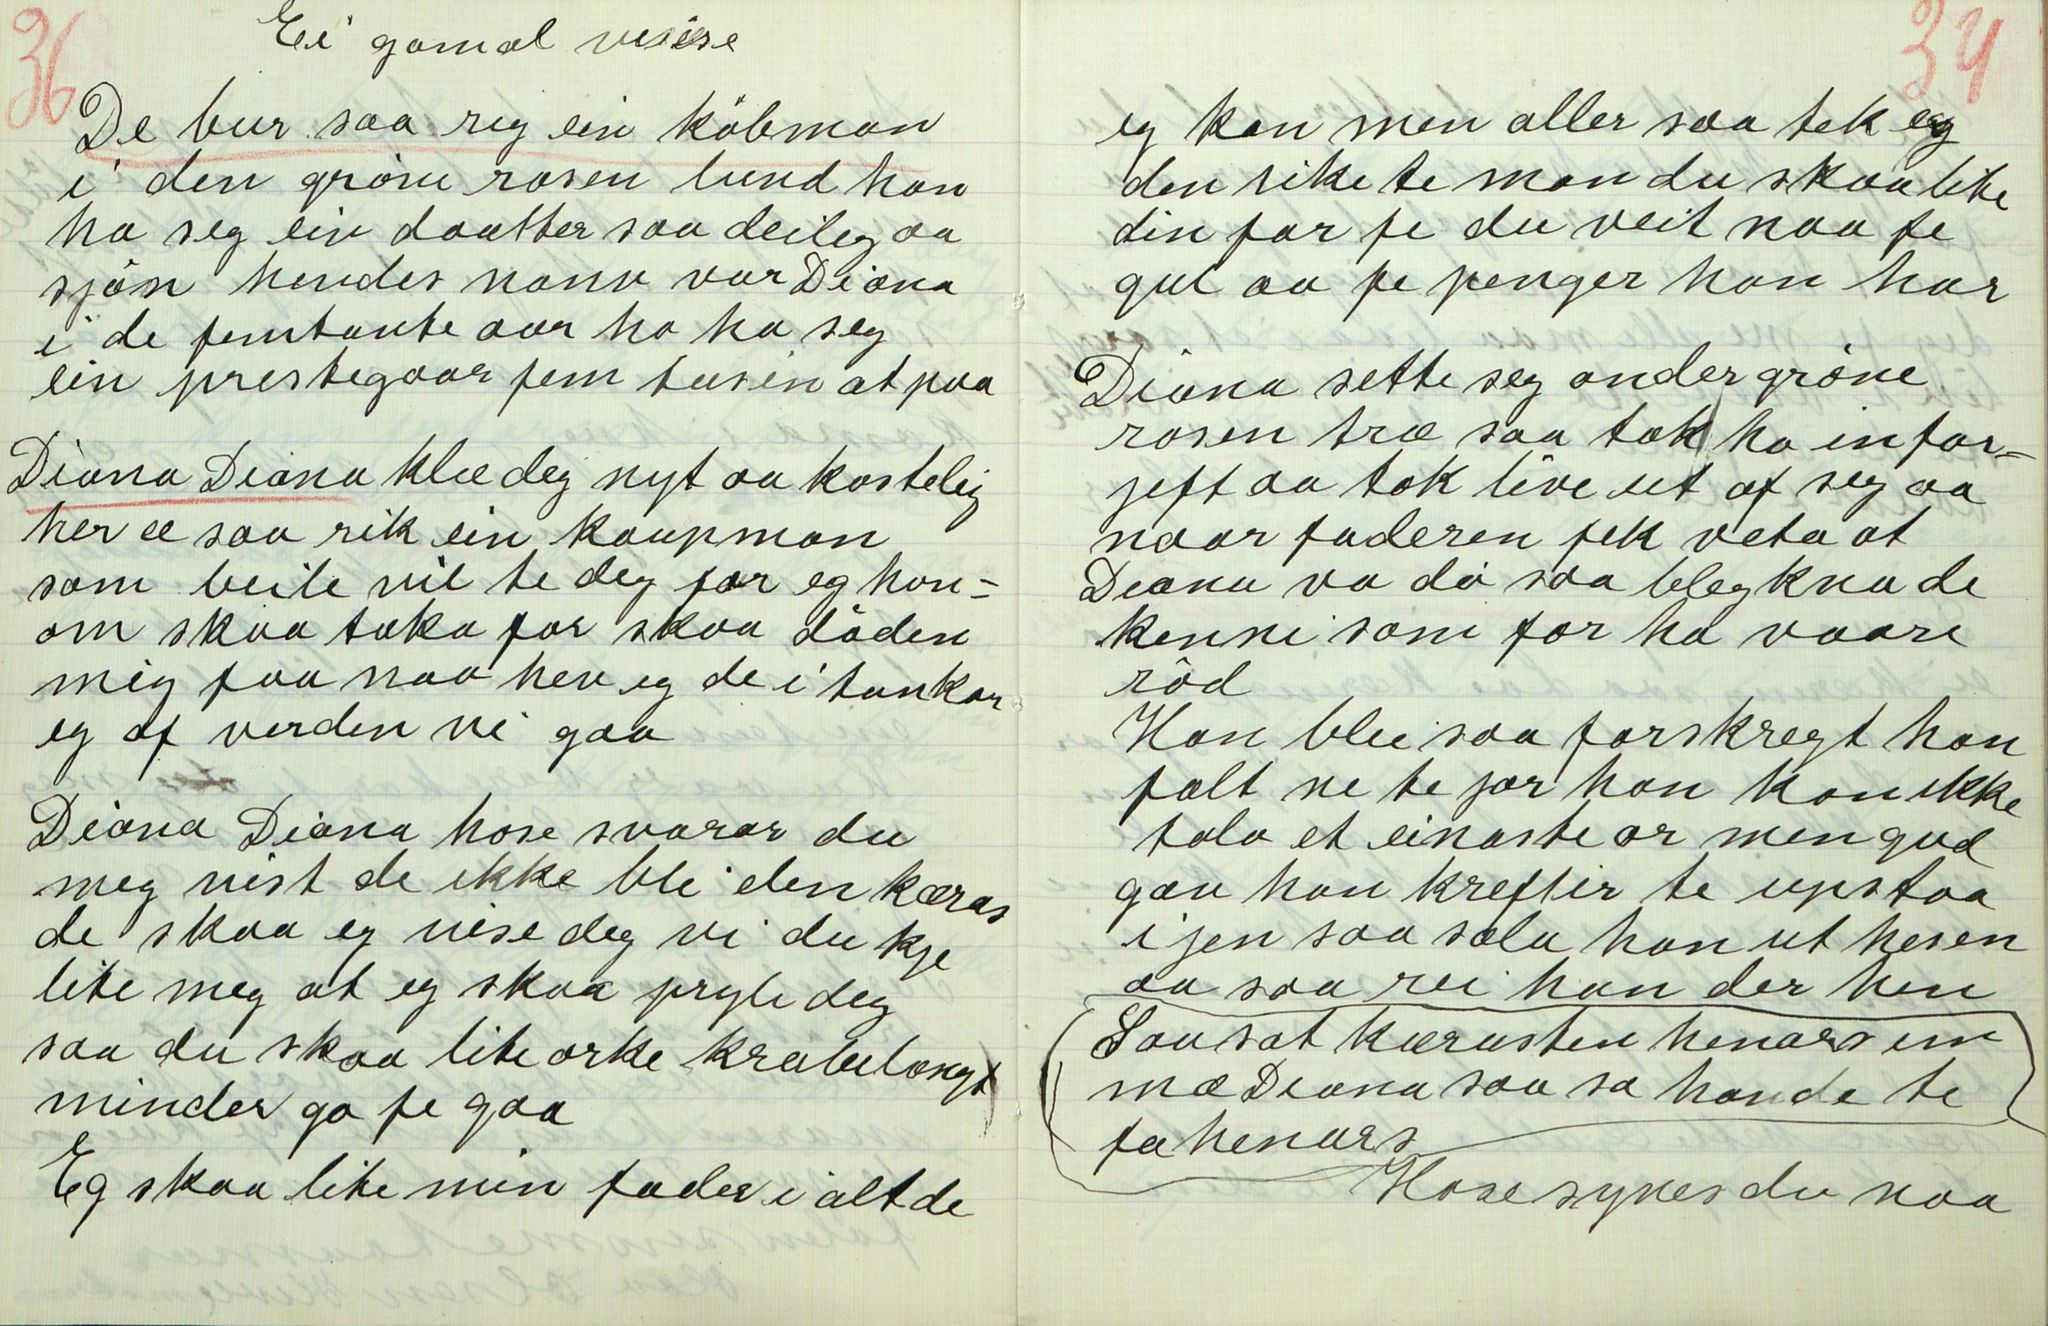 36
Ei gamal visise
De bur saa rig ein köbman
i den gröne rosen lund han
ha seg ein daatter saa deileg aa
sjön hendes nann var Diana
i de femtante aar ho ha seg
ein prestegaar fem tusin at paa
Diana Diana klæ deg nyt aa kostelig
her æ saa rik ein kaupman
som beile vil te deg for eg hon=
om skaa taka for skaa döden
mig faa naa hev eg de i tankar
eg af verden vi gaa
Diana Diana hose svarar du
meg vist de ikke bli den kæras
de skaa eg vise deg vi du kje
lite meg at eg skaa pryle deg
saa du skaa lite orke krabelosyt
minder ga fe gaa
Eg skaa lite min fader i alt de
34
eg kan men aller saa tek eg
den rike te man du skaa lite
din far fe du veit naa fe
gul aa fe penger han har
Diana sette seg onder gröne
rosen træ saa tok ho in for=
jeft aa tok live ut af seg aa
naar faderen fek veta at
Diana va dö saa blegkna de
kenni som for ha vaare
röd
Han blei saa forskregt han
falt ne te jor han kan ikke
tala et einaste or men gud
gav han krefter te upstaa
ijen saa sala han ut hesen
aa saa rei han der hen
Saa sat kærasten henars in
mæ Diana saa sa han de te
fa henars
Hose synes du naa